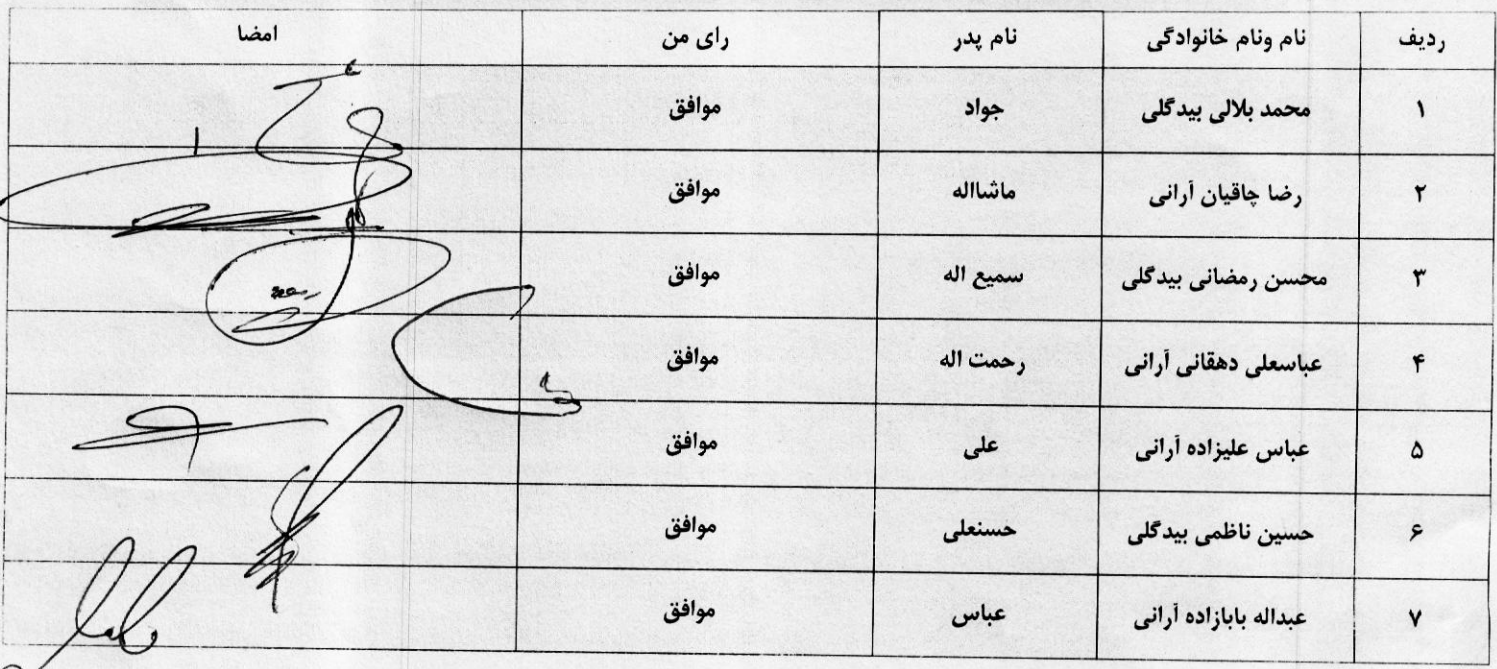 ردیف نام ونام خانوادگی نام پدر رای من امضا
۱ محمد بلالی بیدگلی جواد موافق
۲ رضا چاقیان آرانی ماشااله موافق
۳ محسن رمضانی بیدگلی سمیع اله موافق
۴ عباسعلی دهقانی آرانی رحمت اله موافق
۵ عباس علیزاده آرانی علی موافق
۶ حسین ناظمی بیدگلی حسنعلی موافق
۷ عبداله بابازاده آرانی عباس موافق